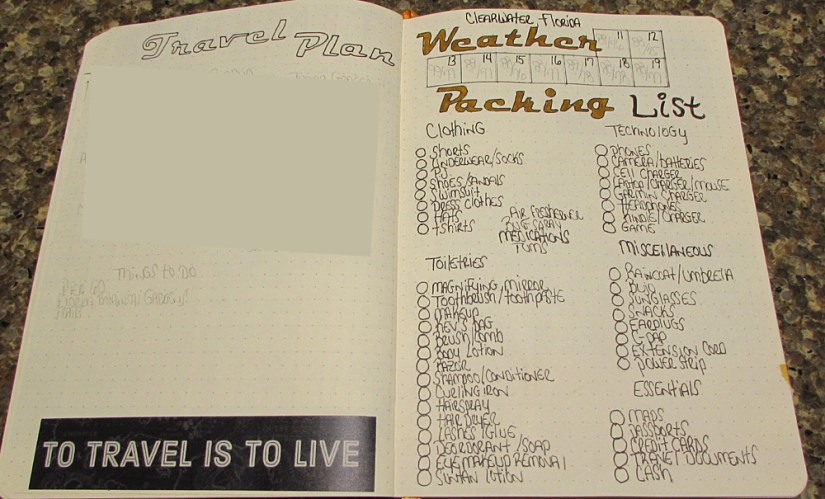 Travel Plan
THINGS TO DO
TO TRAVEL IS TO LIVE
CLEARWATER, FLORIDA
Weather
11 12
13 14 15 16 17 18 19
Packing List
CLOTHING
SHORTS
UNDERWEAR/SOCKS
PJ
SHOES/SANDALS
SWIMSUIT
DRESS CLOTHES
HATS
TSHIRTS
AIR FRESHENER
BUG SPRAY
MEDICATIONS
TUMS
TOILETRIES
MAGNIFYING MIRROR
TOOTHBRUSH/TOOTHPASTE
MAKEUP
KEV'S BAG
BRUSH/COMB
BODY LOTION
RAZOR
SHAMPOO/CONDITIONER
CURLING IRON
HAIRSPRAY
HAIR DRYER
LASHES/GLUE
DEODORANT/SOAP
EYE MAKEUP REMOVAL
SUNTAN LOTION
TECHNOLOGY
PHONES
CAMERA/BATTERIES
CELL CHARGER
LAPTOP/CHARGER/MOUSE
GARMIN CHARGER
HEADPHONES
KINDLE/CHARGER
GAME
MISCELLANEOUS
RAINCOAT/UMBRELLA
BUJO
SUNGLASSES
SNACKS
EARPLUGS
C-PAP
EXTENSION CORD
POWER STRIP
ESSENTIALS
MAPS
PASSPORTS
CREDIT CARDS
TRAVEL DOCUMENTS
CASH